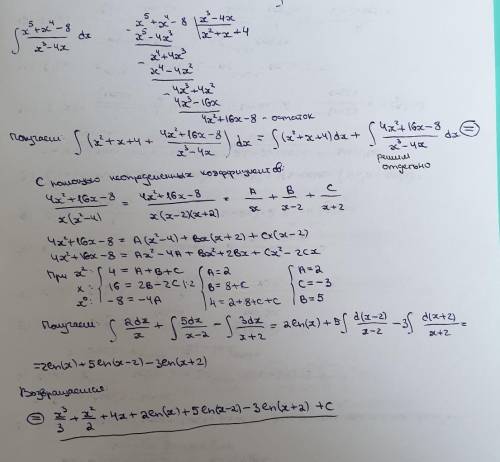 ∫ (x⁵+x⁴-8)/(x³-4x) dx
- x⁵+x⁴-8 | x³-4x
x⁵-4x³ | x²+x+4
- x⁴+4x³
x⁴-4x²
- 4x³+4x²
4x³-16x
4x²+16x-8 - остаток
Получаем: ∫(x²+x+4+ (4x²+16x-8)/(x³-4x)) dx = ∫(x²+x+4)dx + ∫ (4x²+16x-8)/(x³-4x) dx ⊜
решим
отдельно
С помощью неопределенных коэффициентов:
(4x²+16x-8)/(x(x²-4)) = (4x²+16x-8)/(x(x-2)(x+2)) = A/x + B/(x-2) + C/(x+2)
4x²+16x-8 = A(x²-4)+Bx(x+2)+Cx(x-2)
4x²+16x-8 = Ax²-4A+Bx²+2Bx+Cx²-2Cx
При x²: { 4=A+B+C { A=2 { A=2
x: { 16=2B-2C |:2 { B=8+C { C=-3
x⁰: { -8=-4A { 4=2+8+C+C { B=5
Получаем: ∫ 2dx/x + ∫ 5dx/(x-2) - ∫ 3dx/(x+2) = 2ln(x)+5∫ d(x-2)/(x-2) - 3∫ d(x+2)/(x+2) =
=2ln(x)+5ln(x-2)-3ln(x+2)
Возвращаемся
⊜ x³/3 + x²/2 +4x+2ln(x)+5ln(x-2)-3ln(x+2) +C